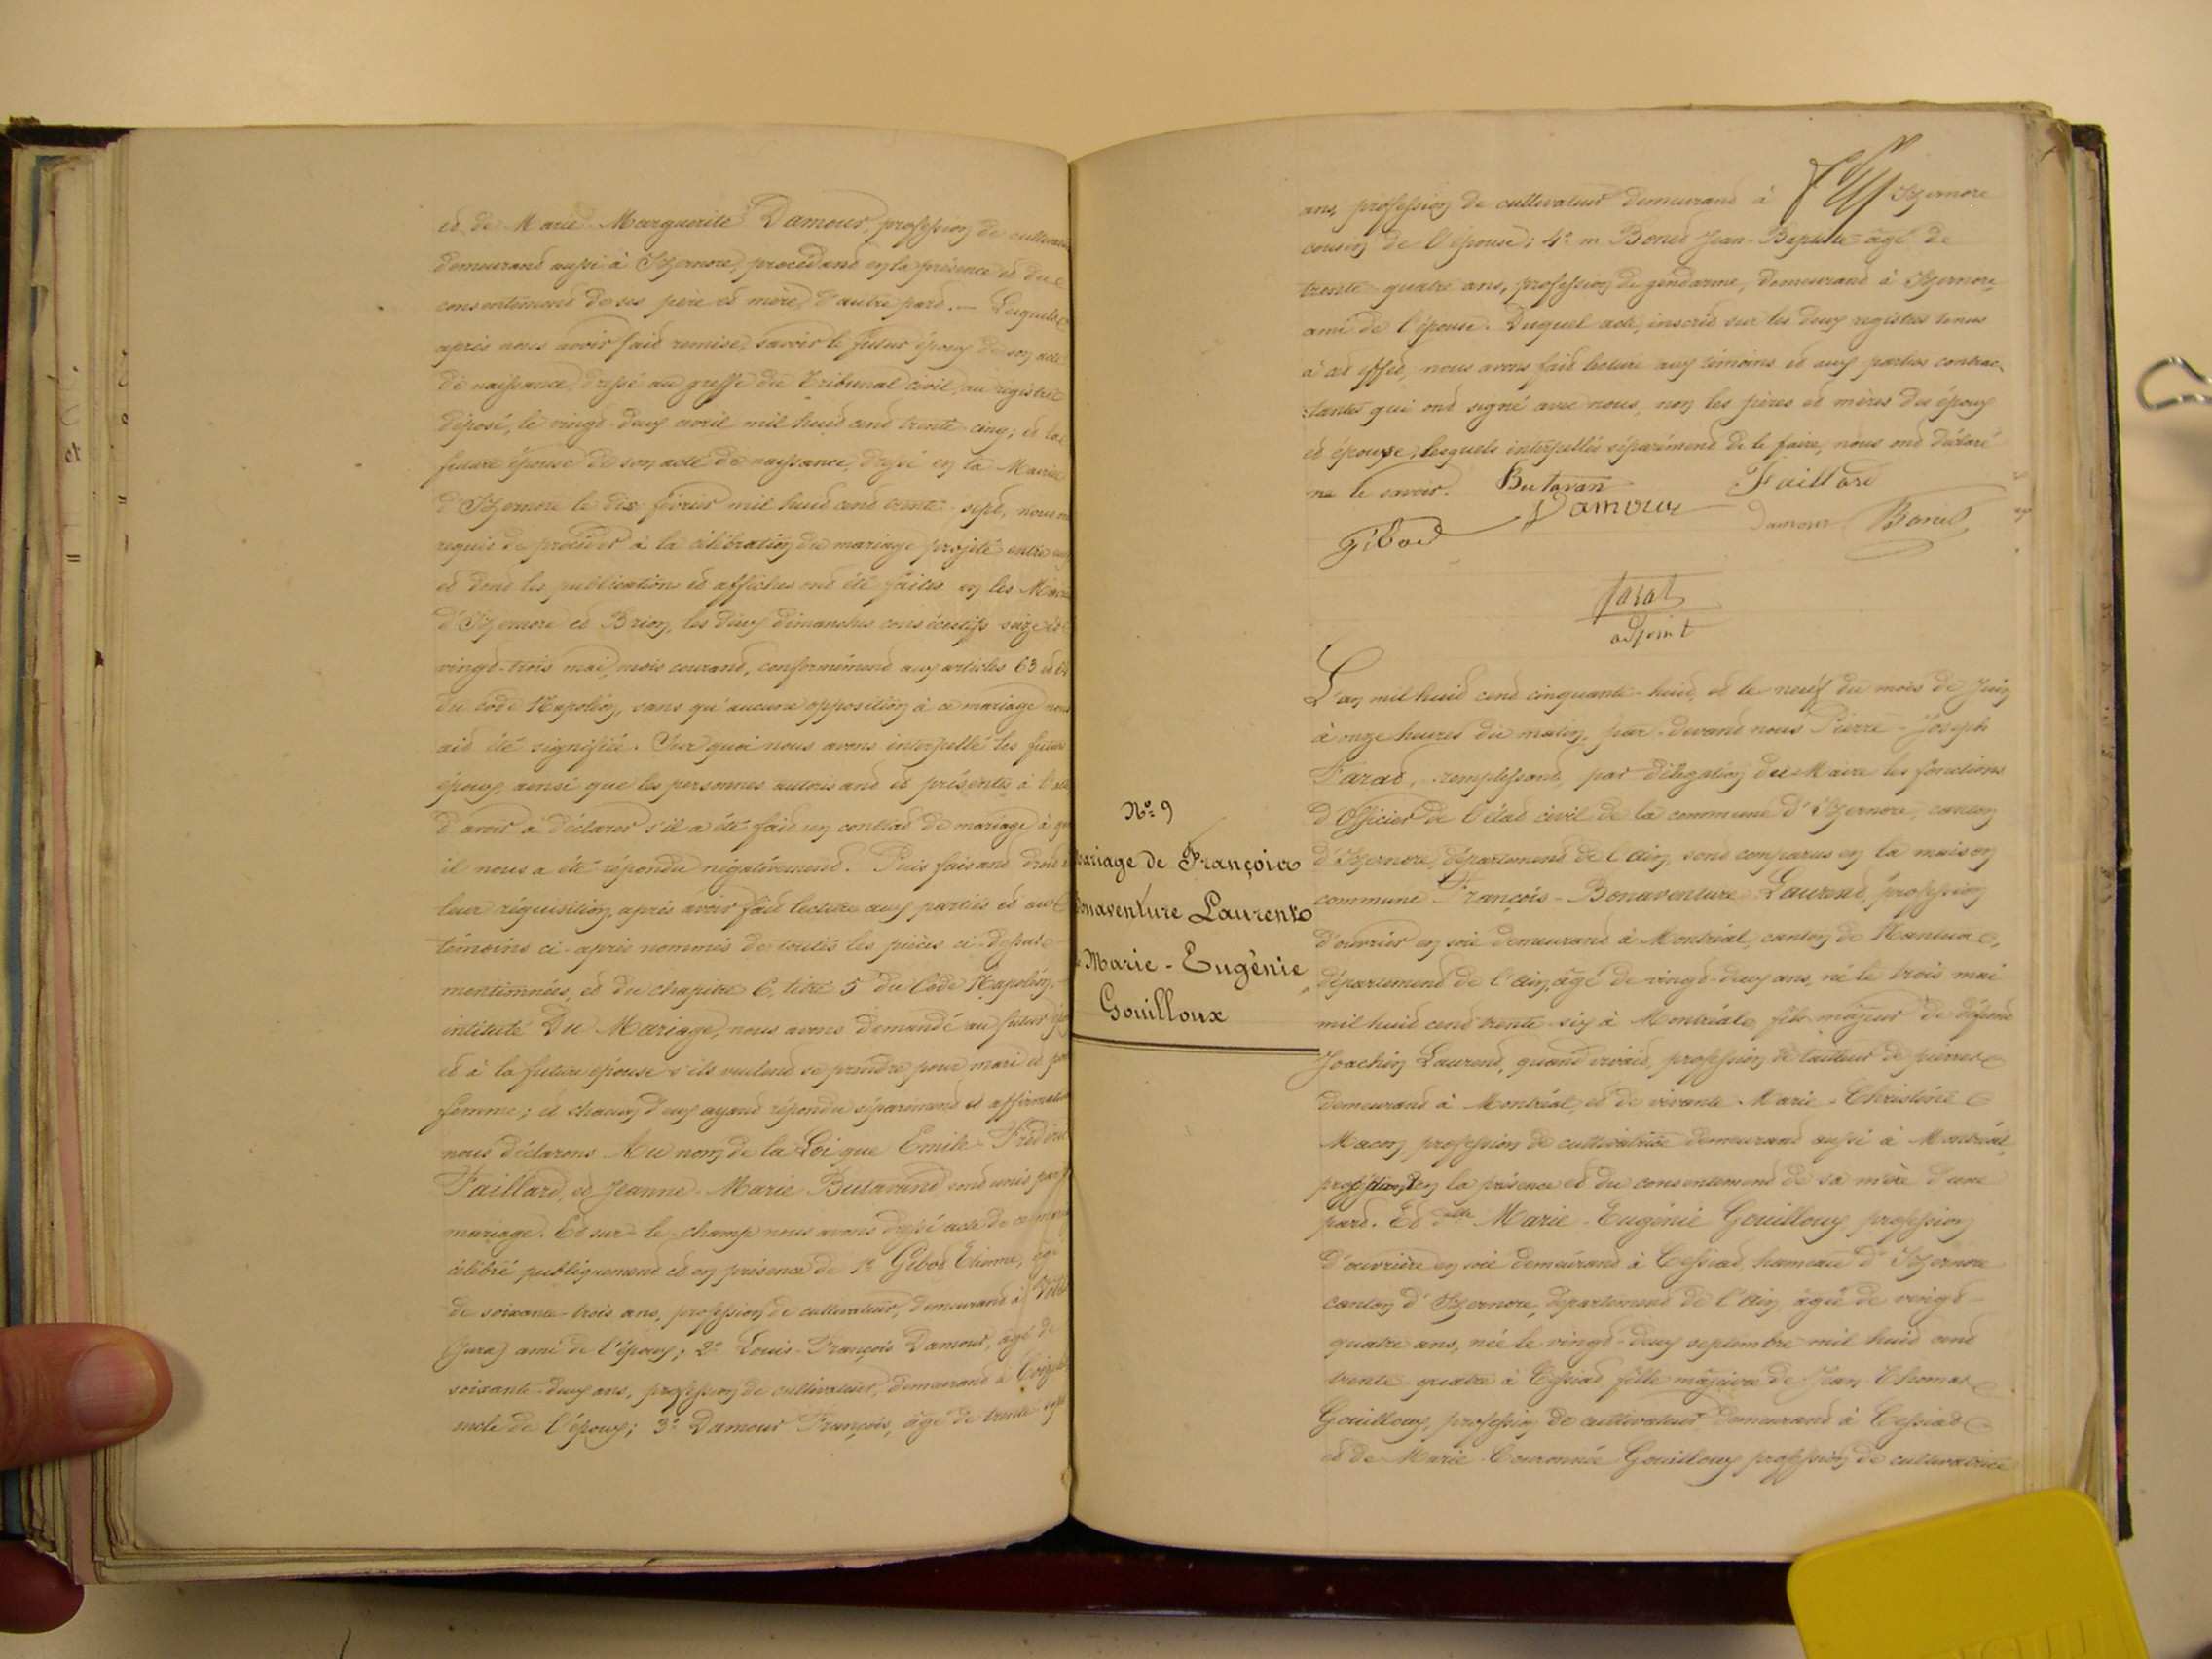 et de Marie Marguerite Damour, profession de cultivat
demeurant aussi à Izernore, procédant en la présence et du
consentement de ses père et mère, d'autre part. — Lesquels
après nous avoir fait remise, savoir le futur époux de son acte
de naissance, dressé au greffe du Tribunal civil, au registre
déposé, le vingt-deux avril mil huit cent trente-cinq; et la
future épouse de son acte de naissance, dressé en la Mairie
d'Izernore le dix février mil huit cent trente-sept, nous ont
requis de procéder à la célébration du mariage projeté entre eux
et dont les publications et affiches ont été faites en les Mairies
d'Izernore et Brion, les deux dimanches consécutifs seize et
vingt-trois mai, mois courant, conformément aux articles 63 et 64
du code Napoléon, sans qu'aucune opposition à ce mariage nous
ait été signifiée. Sur quoi nous avons interpellé les futurs
époux, ainsi que les personnes autorisant et présentes à l'acte
d'avoir à déclarer s'il a été fait un contrat de mariage à quoi
il nous a été répondu négativement. Puis faisant droit à
leur réquisition, après avoir fait lecture aux parties et aux
témoins ci-après nommés de toutes les pièces ci-dessus
mentionnées, et du chapitre 6, titre 5 du Code Napoléon,
intitulé Du Mariage, nous avons demandé au futur époux
et à la future épouse s'ils veulent se prendre pour mari et pour
femme; et chacun d'eux ayant répondu séparément et affirmativ
nous déclarons Au nom de la Loi que Emile-Frédéric
Faillard, et Jeanne-Marie Butavand sont unis par le
mariage. Et sur-le-champ nous avons dressé acte de ce mariage
célébré publiquement et en présence de 1º Gibod Etienne, âgé
de soixante-trois ans, profession de cultivateur, demeurant à
(Jura) ami de l'époux; 2º Louis-François Damour, âgé de
soixante-deux ans, profession de cultivateur, demeurant à
oncle de l'époux; 3º Damour François, âgé de trente-sept
ans, profession de cultivateur demeurant à Izernore
cousin de l'épouse; 4º m Bonet Jean-Baptiste âgé de
trente-quatre ans, profession de gendarme, demeurant à Izernore,
ami de l'épouse. Duquel acte, inscrit sur les deux registres tenus
à cet effet, nous avons fait lecture aux témoins et aux parties contrac-
tantes qui ont signé avec nous, non les pères et mères des époux
et épouse, lesquels interpellés séparément de le faire, nous ont déclaré
ne le savoir. Butavan Faillard
Gibod Damour Damour Bonet
Farat
adjoint
Nº 9
Mariage de François
Bonaventure Laurent
& Marie-Eugènie
Gouilloux
L'an mil huit cent cinquante-huit, et le neuf du mois de Juin
à onze heures du matin, par-devant nous Pierre-Joseph
Farat, remplissant, par délégation du Maire les fonctions
d'Officier de l'état civil de la commune d'Izernore, canton
d'Izernore, département de l'Ain, sont comparus en la maison
commune François-Bonaventure Laurent, profession
d'ouvrier en soie demeurant à Montréal, canton de Nantua,
département de l'Ain, âgé de vingt-deux ans, né le trois mai
mil huit cent trente-six à Montréal, fils majeur de défunt
Joachin Laurent, quand vivait, profession de tailleur de pierres
demeurant à Montréal, et de vivante Marie-Christine
Macon, profession de cultivatrice demeurant aussi à Montréal,
procédant en la présence et du consentement de sa mère d'une
part. Et dlle Marie-Eugènie Gouilloux, profession
d'ouvrière en soie demeurant à Cessiat, hameau d'Izernore
canton d'Izernore, département de l'Ain, âgée de vingt-
quatre ans, née le vingt-deux septembre mil huit cent
trente quatre à Cessiat fille majeure de Jean Thomas
Gouilloux, profession de cultivateur demeurant à Cessiat
et de Marie-Couronnée Gouilloux profession de cultivatrice